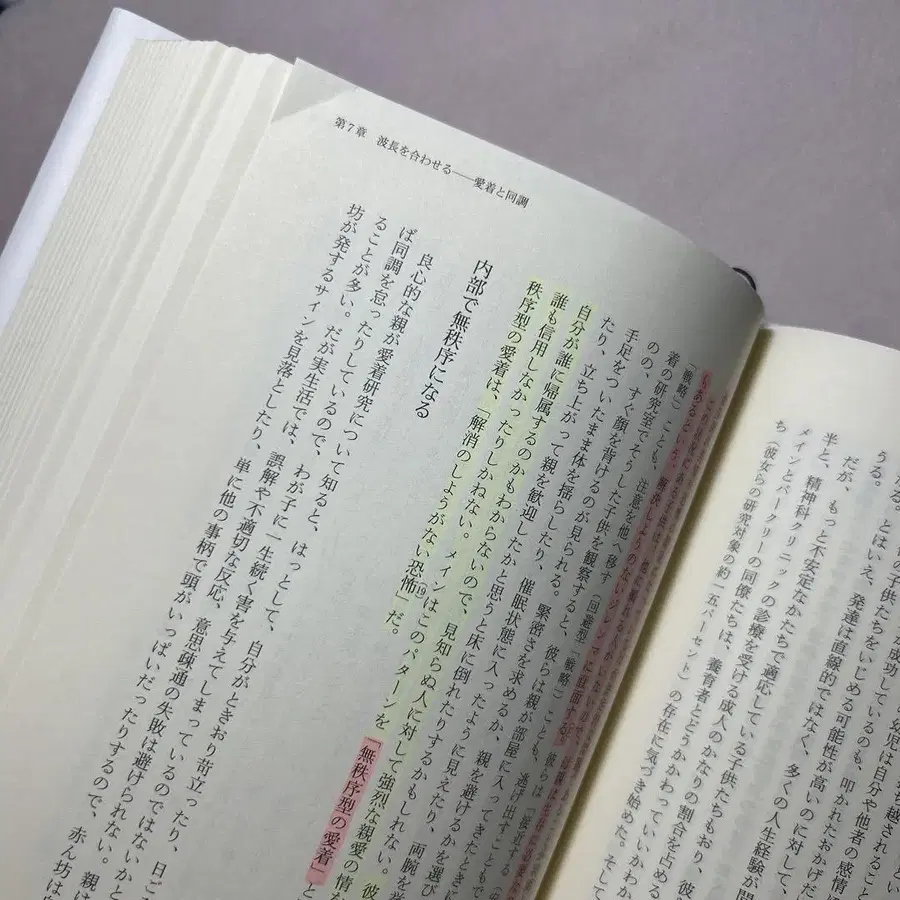 の子供たちをいじめるのも、叩かれたおかげだ
うる。とはいえ、発達は直線的ではなく、多くの人生経験が間
だが、もっと不安定なかたちで適応している子供たちもおり、彼
半と、精神科クリニックの診療を受ける成人のかなりの割合を占める
メインとバークリーの同僚たちは、養育者とどうかかわっていいかわか
ち（彼女らの研究対象の約一五パーセント）の存在に気づき始めた。そして
第7章　波長を合わせる――愛着と同調
解決しようのないジレンマに直面する
「戦略」）ことも、注意を他へ移す（回避型「戦略」）ことも、逃げ出すこともで
着の研究室でそうした子供を観察すると、彼らは親が部屋に入ってきたときに
のの、すぐ顔を背けるのが見られる。緊密さを求めるか、親を避けるかを選び
手足をついたまま体を揺らしたり、催眠状態に入ったように見えたり、両腕を
たり、立ち上がって親を歓迎したかと思うと床に倒れたりするかもしれない。彼
自分が誰に帰属するのかもわからないので、見知らぬ人に対して強烈な親愛の情な
誰も信用しなかったりしかねない。メインはこのパターンを「無秩序型の愛着」と
秩序型の愛着は、「解消のしようがない恐怖⑲」だ。
内部で無秩序になる
良心的な親が愛着研究について知ると、はっとして、自分がときおり苛立ったり、日ご
ば同調を怠ったりしているので、わが子に一生続く害を与えてしまっているのではないかと
ることが多い。だが実生活では、誤解や不適切な反応、意思疎通の失敗は避けられない。親は
坊が発するサインを見落としたり、単に他の事柄で頭がいっぱいだったりするので、赤ん坊は